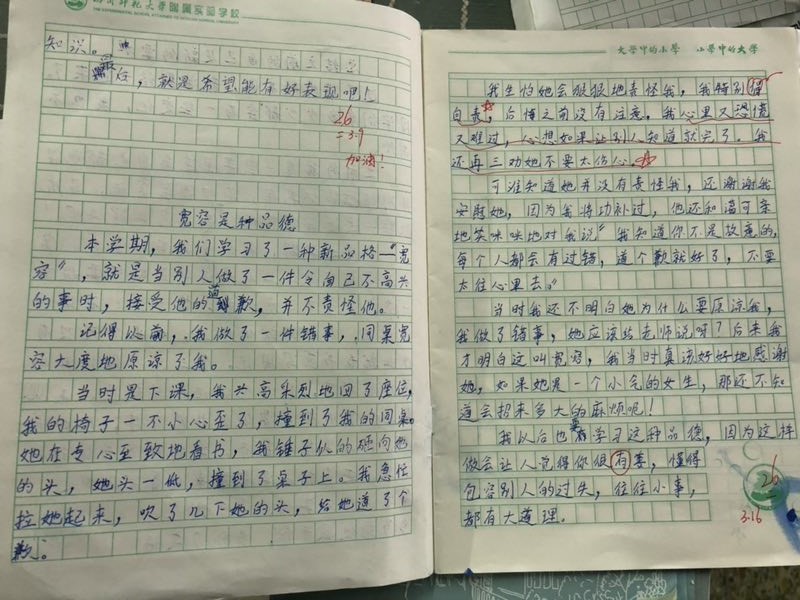 师范大学附属实验学校
THE EXPERIMENTAL SCHOOL ATTACHED TO
知识。
最后，就是希望能有好表现吧！
26
3.9
加油！
宽容是种品德
本学期，我们学习了一种新品格—“宽
容”，就是当别人做了一件令自己不高兴
的事时，接受他的道歉，并不责怪他。
记得以前，我做了一件错事，同桌宽
容大度地原谅了我。
当时是下课，我兴高采烈地回了座位，
我的椅子一不小心歪了，撞到了我的同桌。
她在专心至致地看书，我锤子似的砸向她
的头，她头一低，撞到了桌子上。我急忙
拉她起来，吹了几下她的头，给她道了个
歉。
大学中的小学 小学中的大学
我生怕她会狠狠地责怪我，我特别
自责，后悔之前没有注意。我心里又恐慌
又难过，心想如果让别人知道就完了。我
还再三劝她不要太伤心。
可谁知道她并没有责怪我，还谢谢我
安慰她，因为我将功补过，他还和蔼可亲
地笑咪咪地对我说“我知道你不是故意的，
每个人都会有过错，道个歉就好了，不要
太往心里去。”
当时我还不明白她为什么要原谅我，
我做了错事，她应该告老师说呀？后来我
才明白这叫宽容，我当时真该好好地感谢
她，如果她是一个小气的女生，那还不知
道会招来多大的麻烦呢！
我以后也要学习这种品德，因为这样
做会让人觉得你很有善，懂得
包容别人的过失，往往小事，
都有大道理。
26
3.16